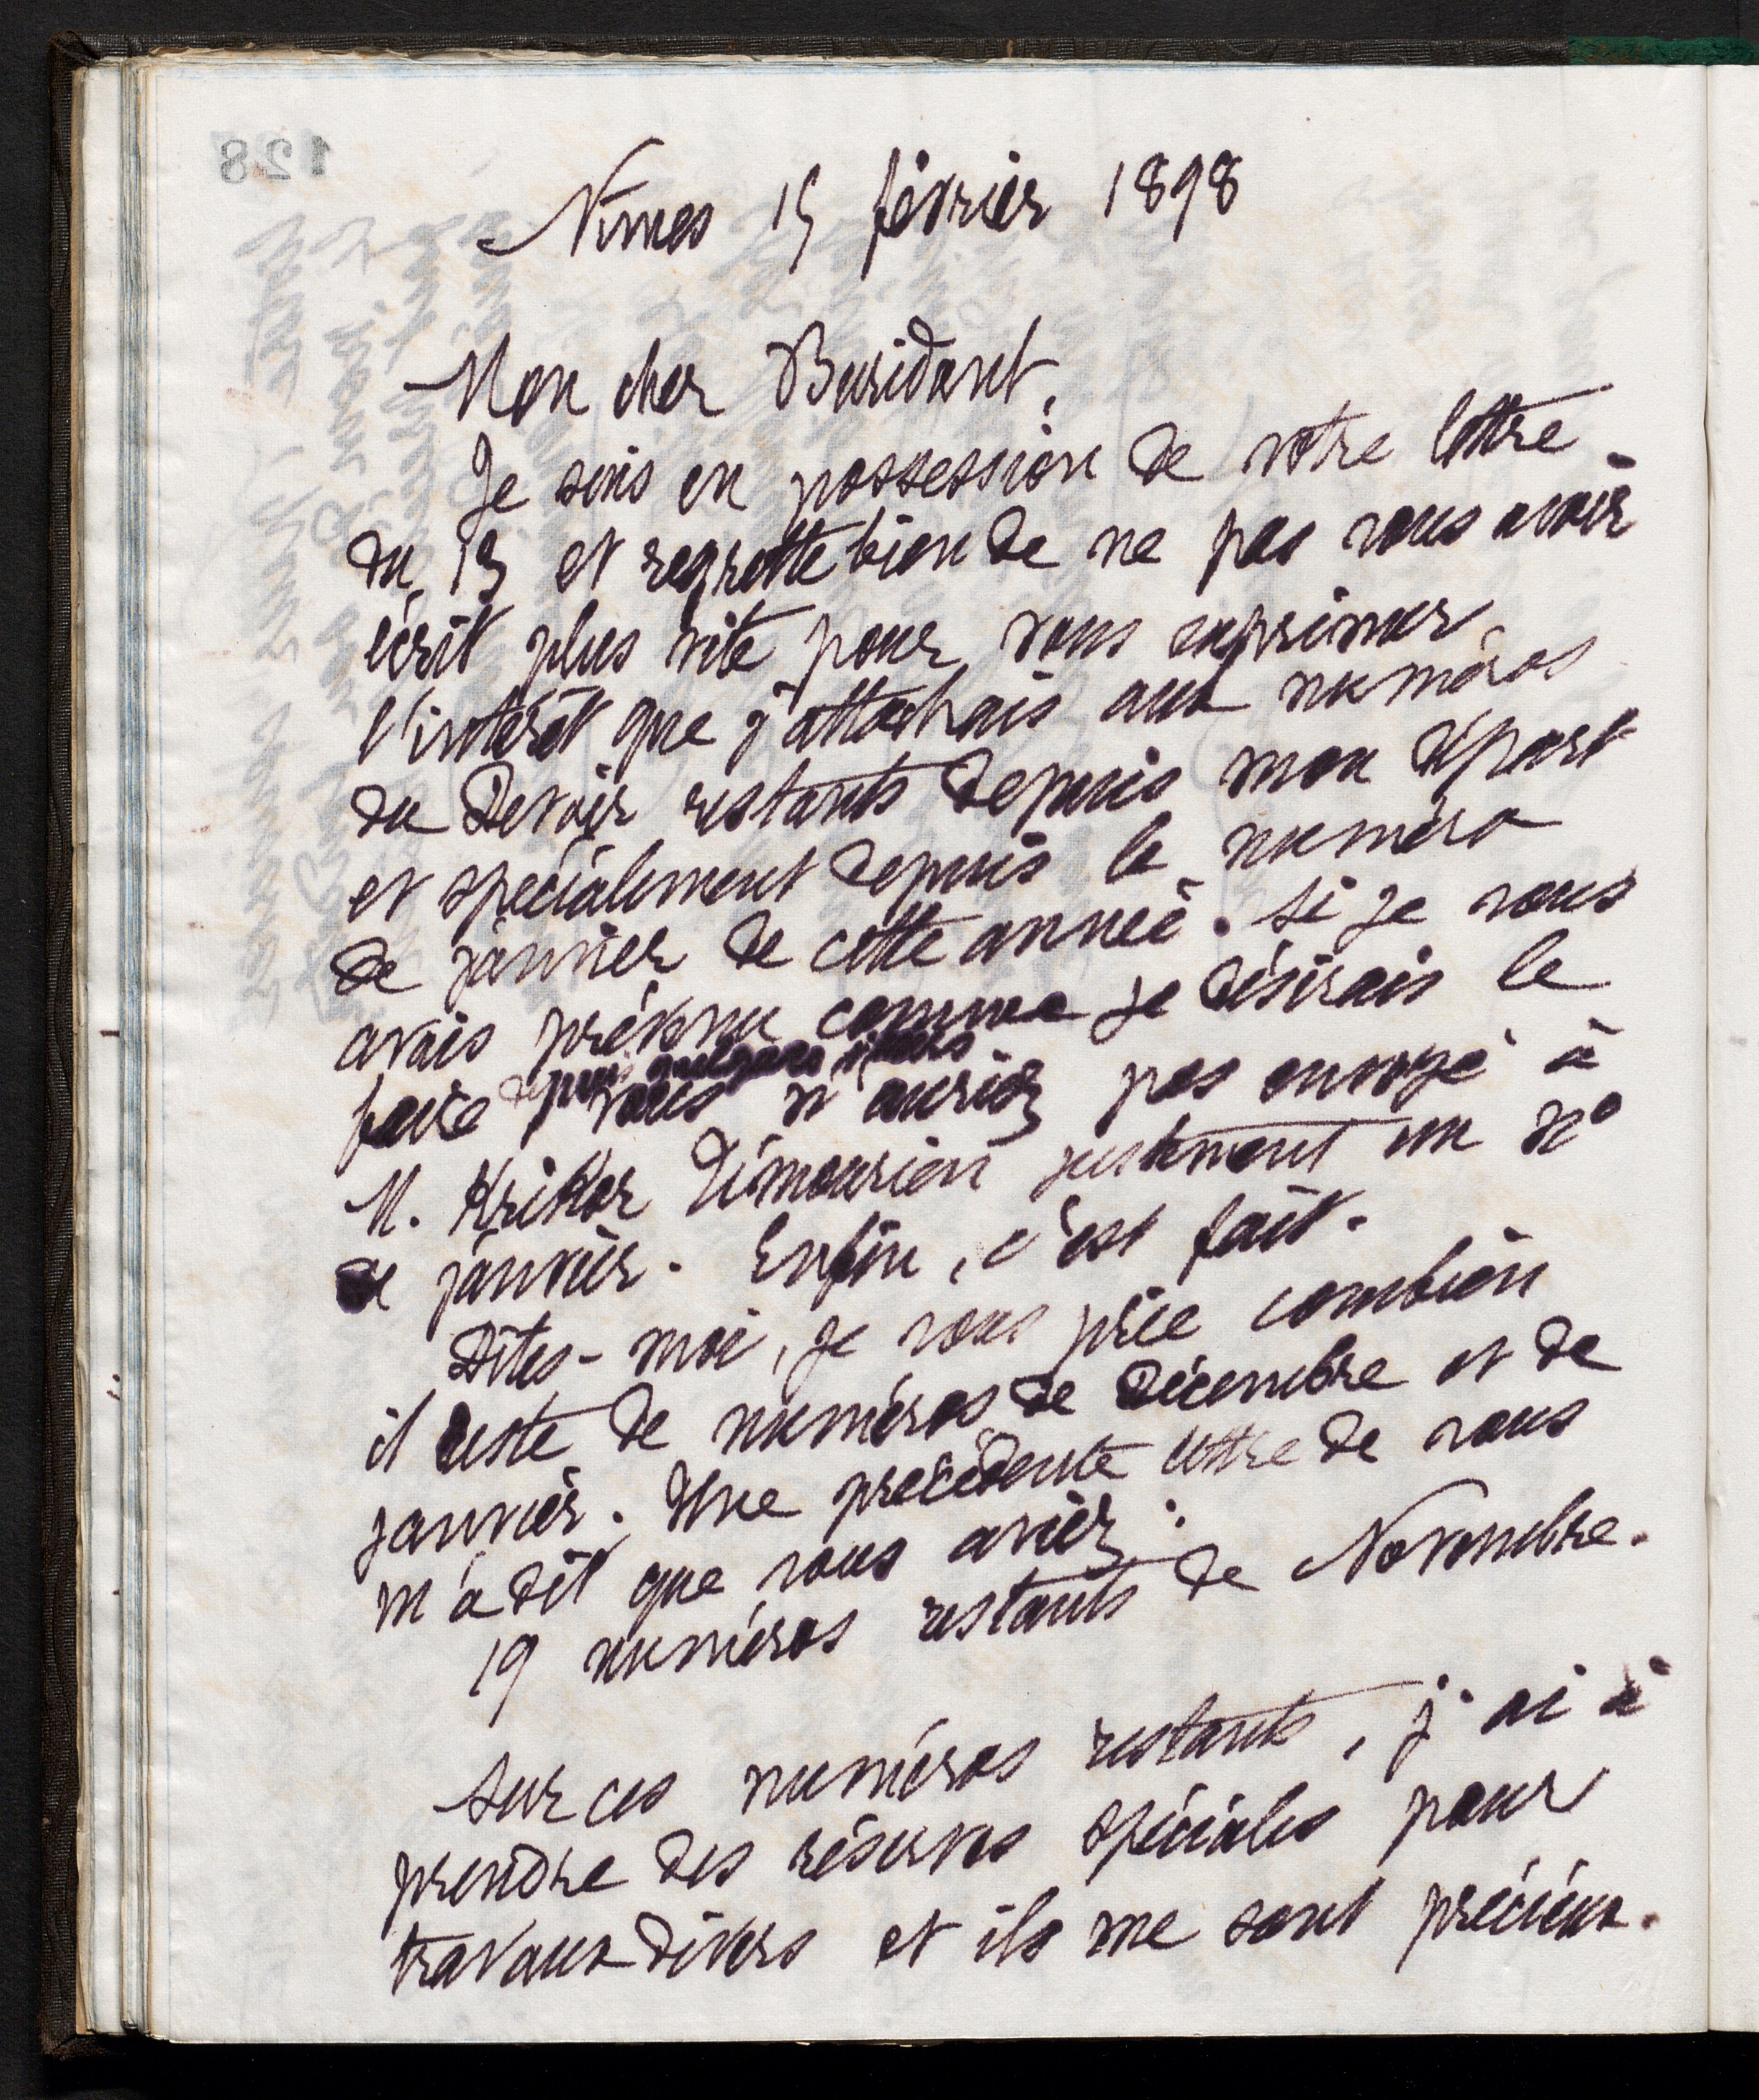 128
Nîmes 15 février 1898
Mon cher Buridant,
Je suis en possession de votre lettre
du 13 et regrette bien de ne pas vous avoir
écrit plus vite pour vous exprimer
l'intérêt que j'attachais aux numéros
du Devoir restants depuis mon départ
et spécialement depuis le numéro
de janvier de cette année. Si je vous
avais prévenu comme je désirais le
faire depuis quelques jours
vous n'auriez pas envoyé à
M. Krikor Dimourian justement un No
de janvier. Enfin, c'est fait.
Dites-moi, je vous prie combien
il reste de numéros de Décembre et de
janvier. Une précédente lettre de vous
m'a dit que vous aviez :
19 numéros restants de Novembre.
Sur ces numéros restants, j'ai à
prendre des réserves spéciales pour
travaux divers et ils me sont précieux.